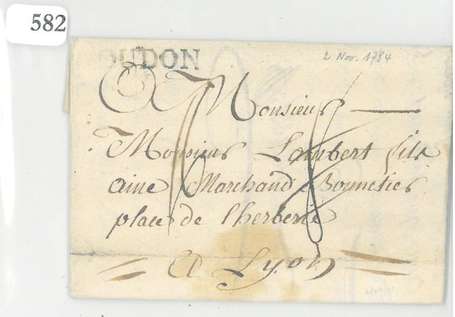 582
OUDON
2 Nov. 1784
A Monsieur
Monsieur Lambert fils
ainé Marchand Bonnetier
place de l'herberie
A Lyon